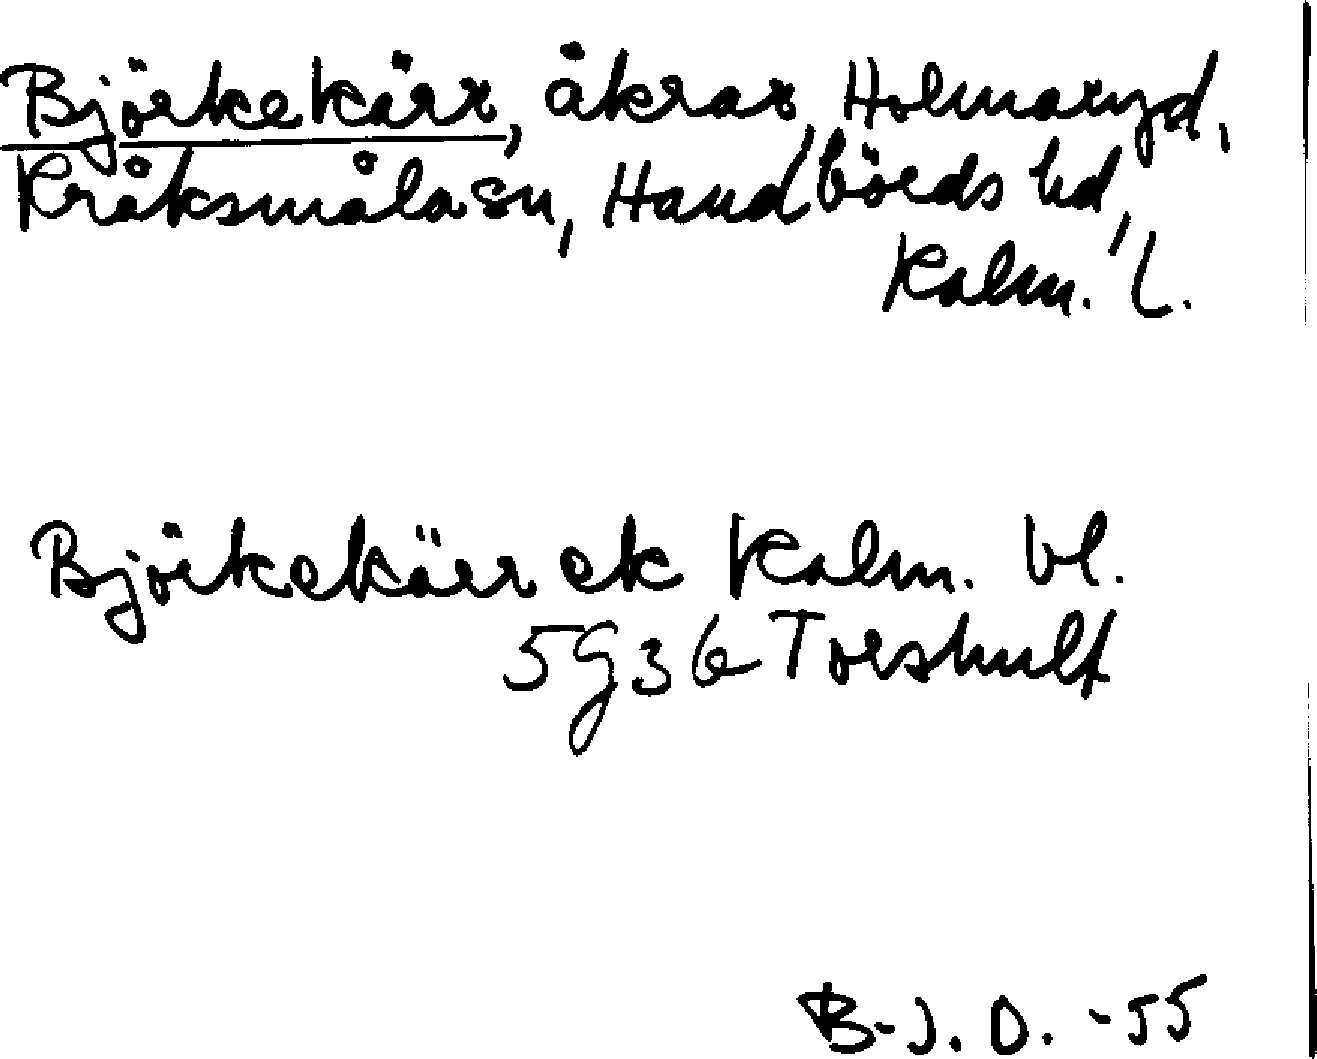 Björkekärr, åkrar, Holmaryd,
Kråksmåla sn, Handbörds hd,
Kalm. l.
Björkekärr ek Kalm. bl.
5g36 Torshult
B-J. O. -55